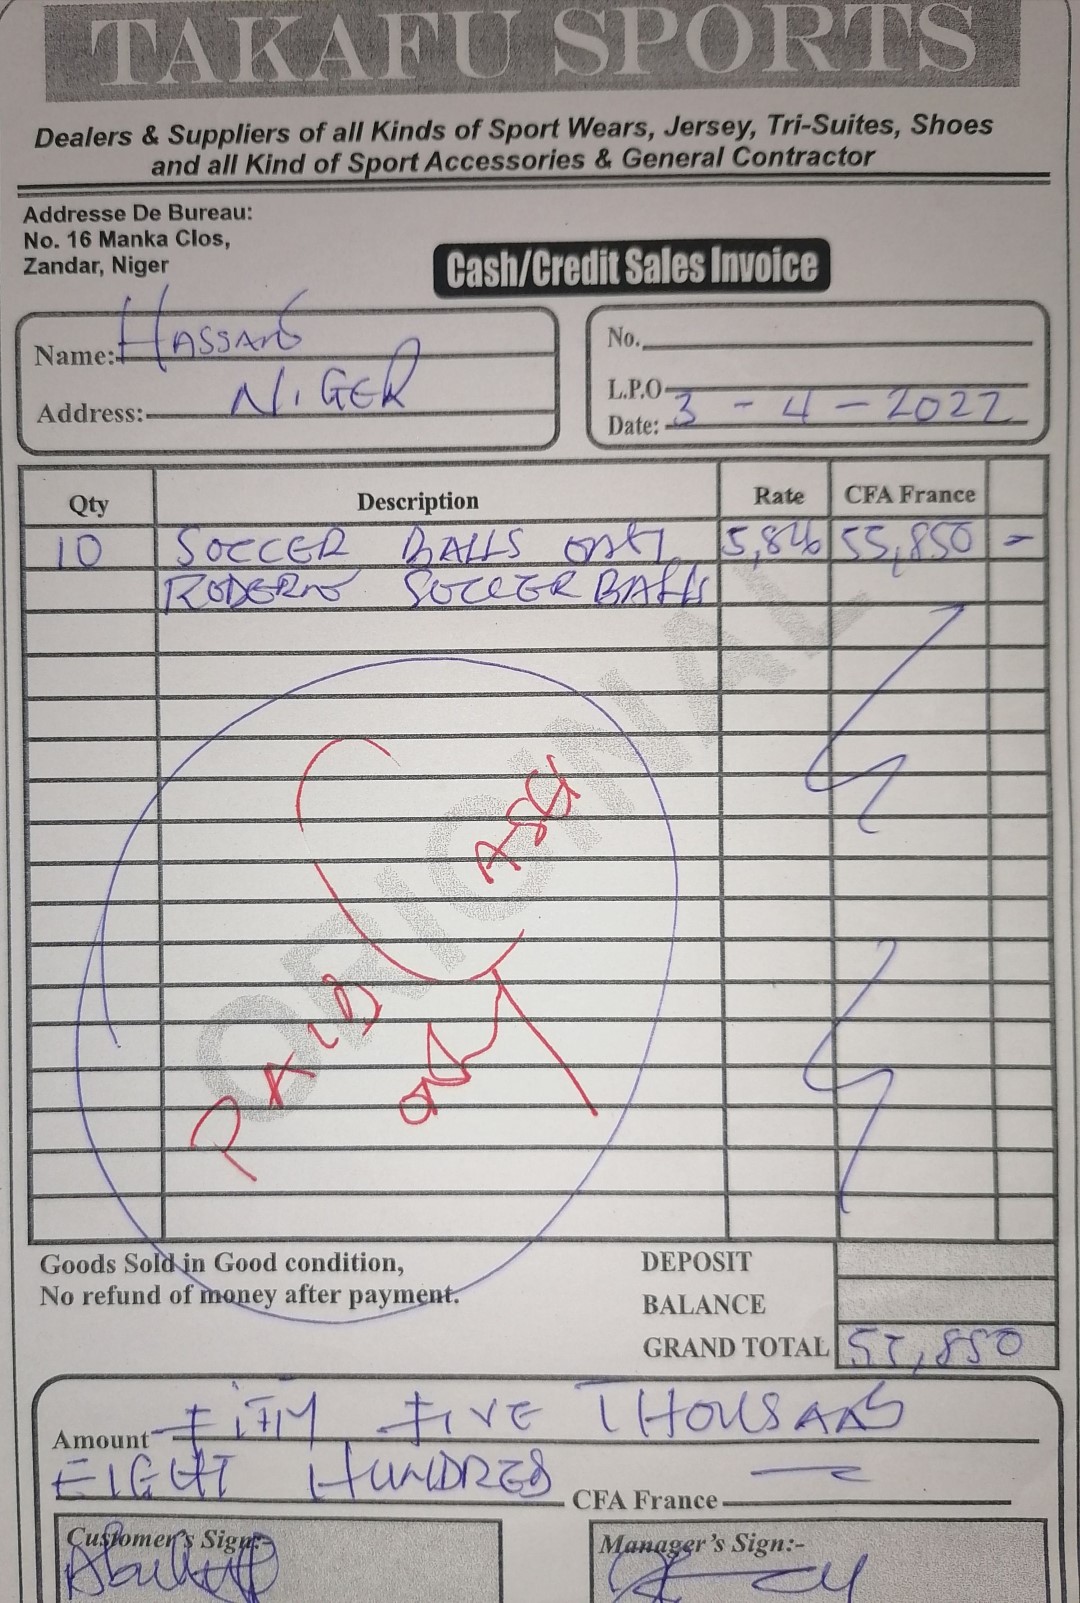 TAKAFU SPORTS
Dealers & Suppliers of all Kinds of Sport Wears, Jersey, Tri-Suites, Shoes
and all Kind of Sport Accessories & General Contractor
Addresse De Bureau:
No. 16 Manka Clos,
Zandar, Niger
Cash/Credit Sales Invoice
Name: HASSAN
Address: NIGER
No.
L.P.O
Date: 3 - 4 - 2022
Qty Description Rate CFA France
10 SOCCER BALLS 55,850 -
SOCCER BALLS
ORIGINAL
CASH
PAID
Goods Sold in Good condition,
No refund of money after payment.
DEPOSIT
BALANCE
GRAND TOTAL 55,850
Amount FIFTY FIVE THOUSAND
EIGHT HUNDRED CFA France
Customer's Sign:-
Manager's Sign:-